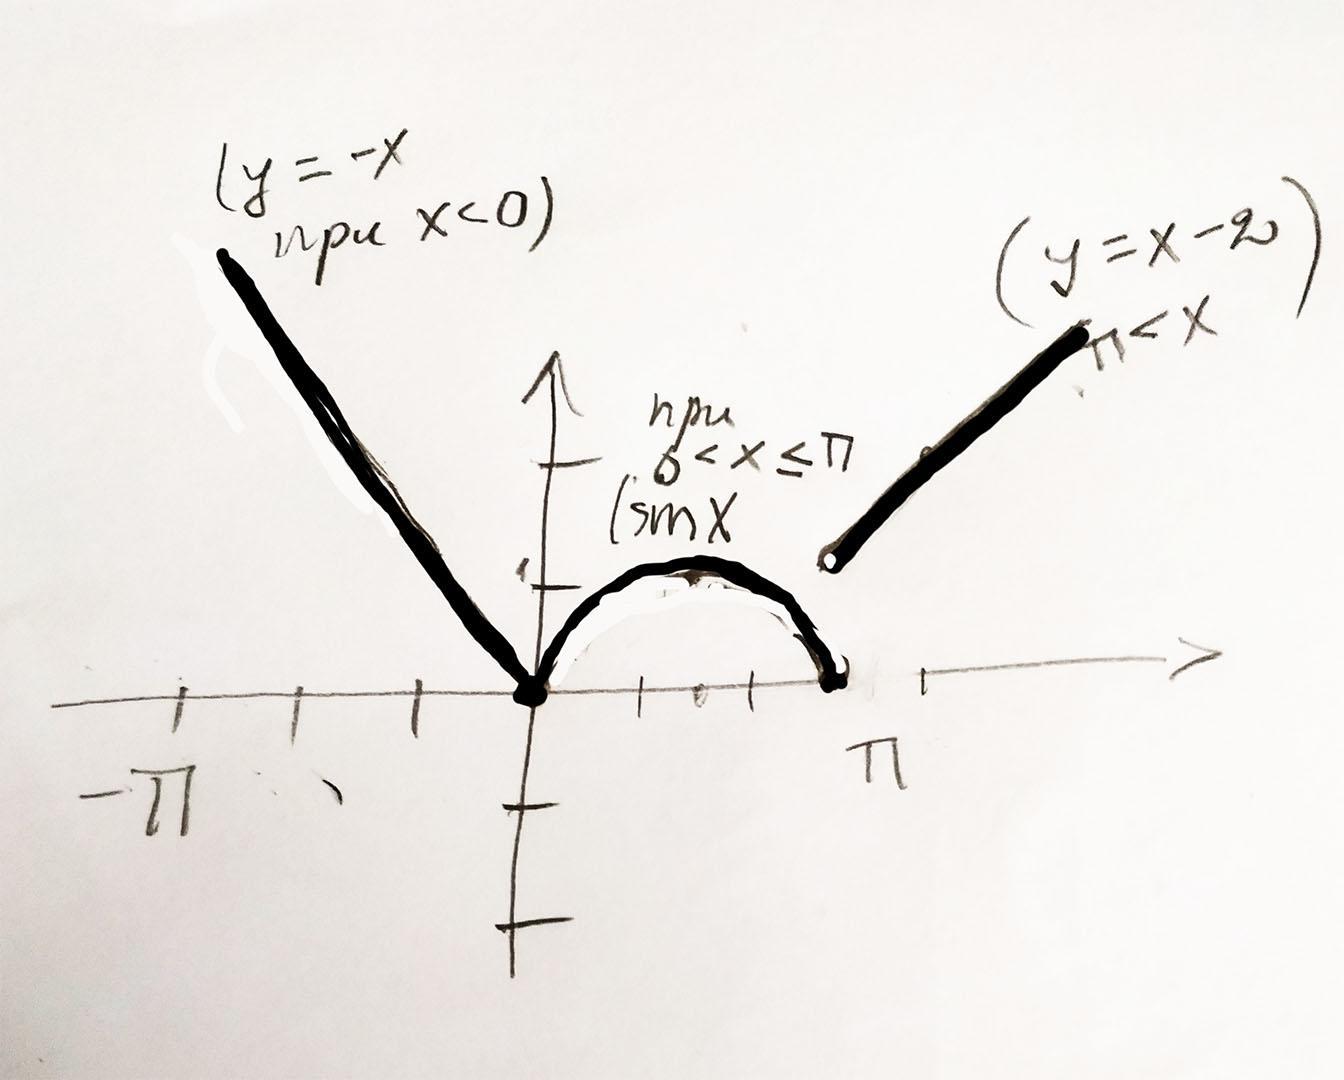 (y = -x
при x<0)
(y = x-2)
π < x
при
0 < x ≤ π
(sin x
-π
π